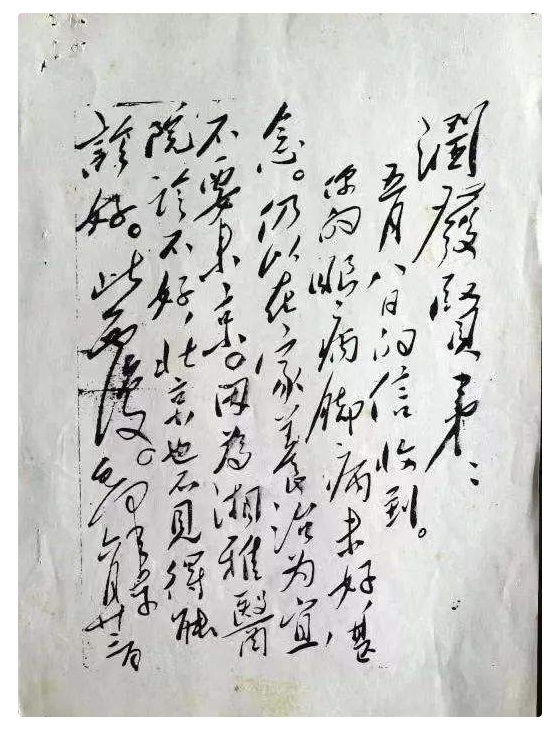 潤發賢弟：
五月八日的信收到。
你的眼病脚病未好，甚
念。仍以在家養治为宜，
不要来京。因為湘雅醫
院診不好，北京也不見得能
診好。此覆。毛澤東 六月廿